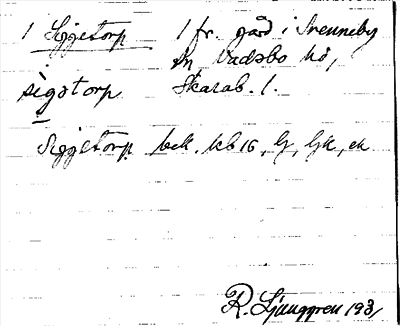 1 Siggetorp 1 fr. gård i Svenneby
sn, Vadsbo hd,
sigstorp Skarab. l.
Siggetorp bek. kb 16, lj, ljk, ek
R. Ljunggren 1931